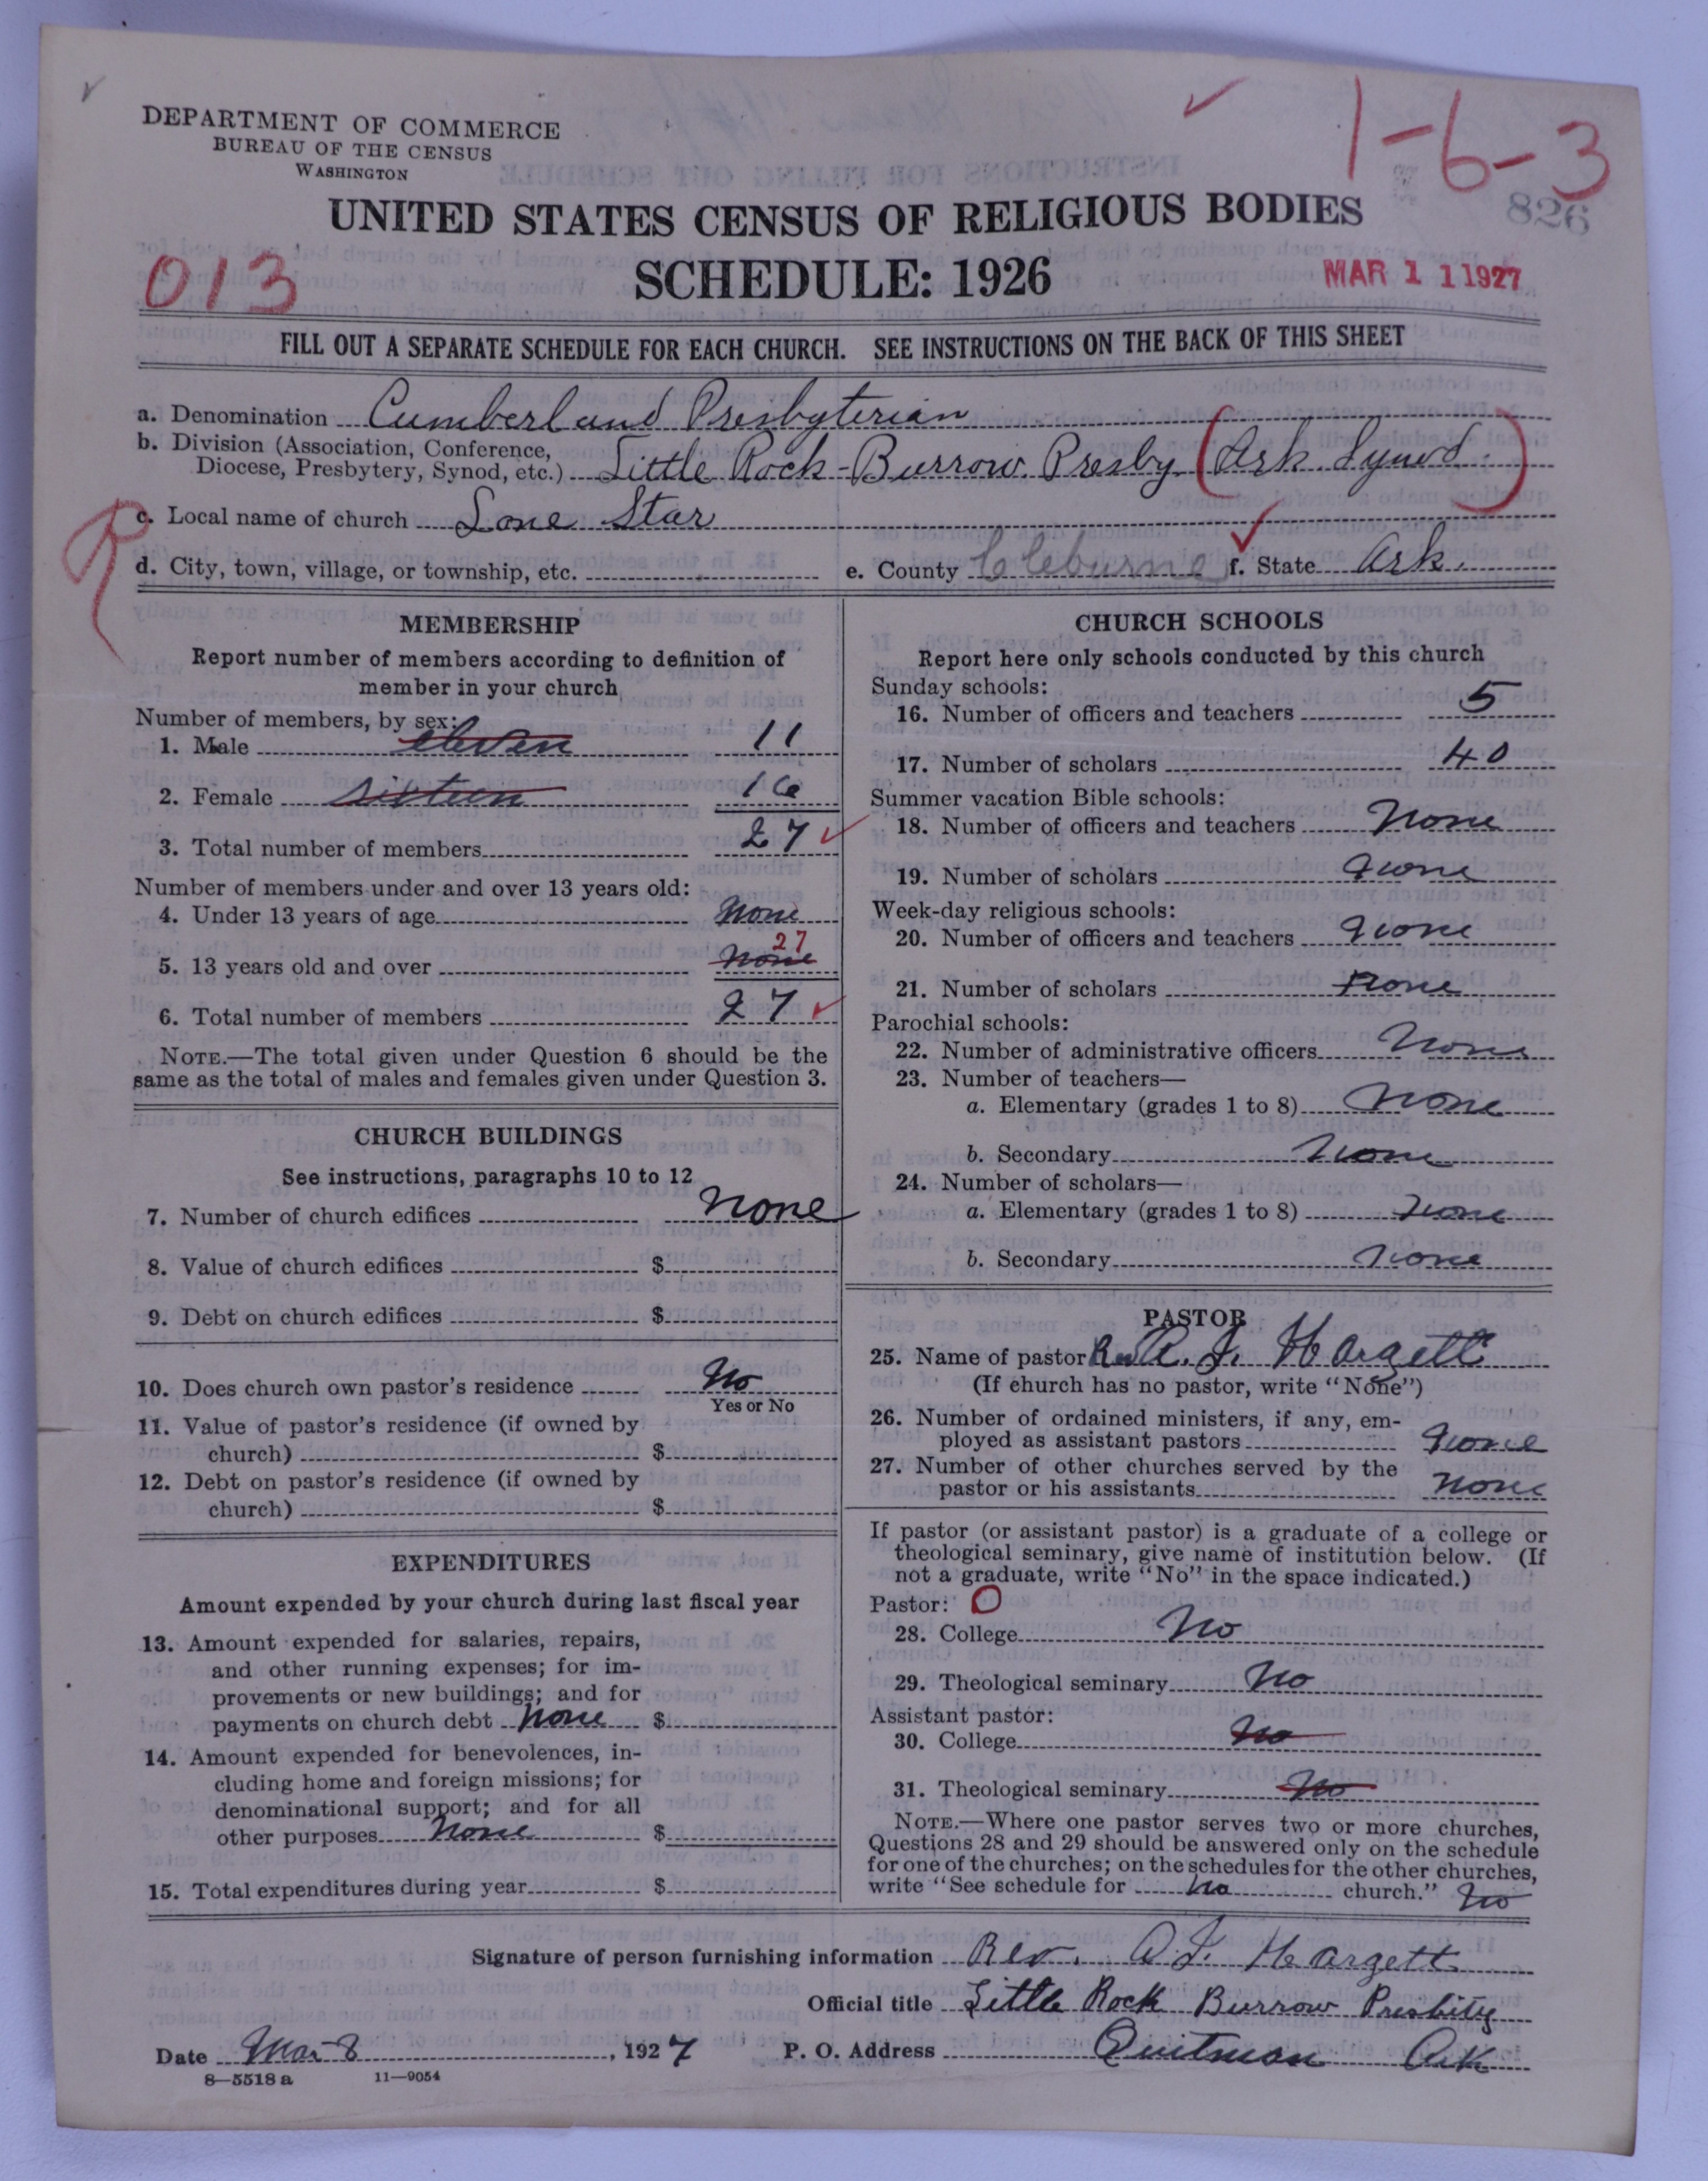 DEPARTMENT OF COMMERCE
BUREAU OF THE CENSUS
WASHINGTON
1-6-3
826
UNITED STATES CENSUS OF RELIGIOUS BODIES
013
SCHEDULE: 1926
MAR 11 1927
FILL OUT A SEPARATE SCHEDULE FOR EACH CHURCH. SEE INSTRUCTIONS ON THE BACK OF THIS SHEET
a. Denomination Cumberland Presbyterian
b. Division (Association, Conference,
Diocese, Presbytery, Synod, etc.) Little Rock-Burrow. Presby (Ark. Synod.)
R
c. Local name of church Lone Star
d. City, town, village, or township, etc. e. County Cleburne f. State Ark.
MEMBERSHIP
Report number of members according to definition of
member in your church
Number of members, by sex:
1. Male eleven 11
2. Female sixteen 16
3. Total number of members 27
Number of members under and over 13 years old:
4. Under 13 years of age None
27
5. 13 years old and over None
6. Total number of members 27
NOTE.—The total given under Question 6 should be the
same as the total of males and females given under Question 3.
CHURCH BUILDINGS
See instructions, paragraphs 10 to 12
7. Number of church edifices none
8. Value of church edifices $
9. Debt on church edifices $
10. Does church own pastor's residence No
Yes or No
11. Value of pastor's residence (if owned by
church) $
12. Debt on pastor's residence (if owned by
church) $
EXPENDITURES
Amount expended by your church during last fiscal year
13. Amount expended for salaries, repairs,
and other running expenses; for im-
provements or new buildings; and for
payments on church debt None $
14. Amount expended for benevolences, in-
cluding home and foreign missions; for
denominational support; and for all
other purposes None $
15. Total expenditures during year $
CHURCH SCHOOLS
Report here only schools conducted by this church
Sunday schools:
16. Number of officers and teachers 5
17. Number of scholars 40
Summer vacation Bible schools:
18. Number of officers and teachers None
19. Number of scholars none
Week-day religious schools:
20. Number of officers and teachers none
21. Number of scholars none
Parochial schools:
22. Number of administrative officers None
23. Number of teachers—
a. Elementary (grades 1 to 8) None
b. Secondary None
24. Number of scholars—
a. Elementary (grades 1 to 8) None
b. Secondary none
PASTOR
25. Name of pastor Rev A. J. Hargett
(If church has no pastor, write "None")
26. Number of ordained ministers, if any, em-
ployed as assistant pastors none
27. Number of other churches served by the
pastor or his assistants none
If pastor (or assistant pastor) is a graduate of a college or
theological seminary, give name of institution below. (If
not a graduate, write "No" in the space indicated.)
Pastor: O
28. College No
29. Theological seminary No
Assistant pastor:
30. College No
31. Theological seminary No
NOTE.—Where one pastor serves two or more churches,
Questions 28 and 29 should be answered only on the schedule
for one of the churches; on the schedules for the other churches,
write "See schedule for no church." No
Signature of person furnishing information Rev. A J. Hargett
Official title Little Rock Burrow Presbitry
Date Mar 8, 1927 P. O. Address Quitman Ark
8—5518a 11—9054